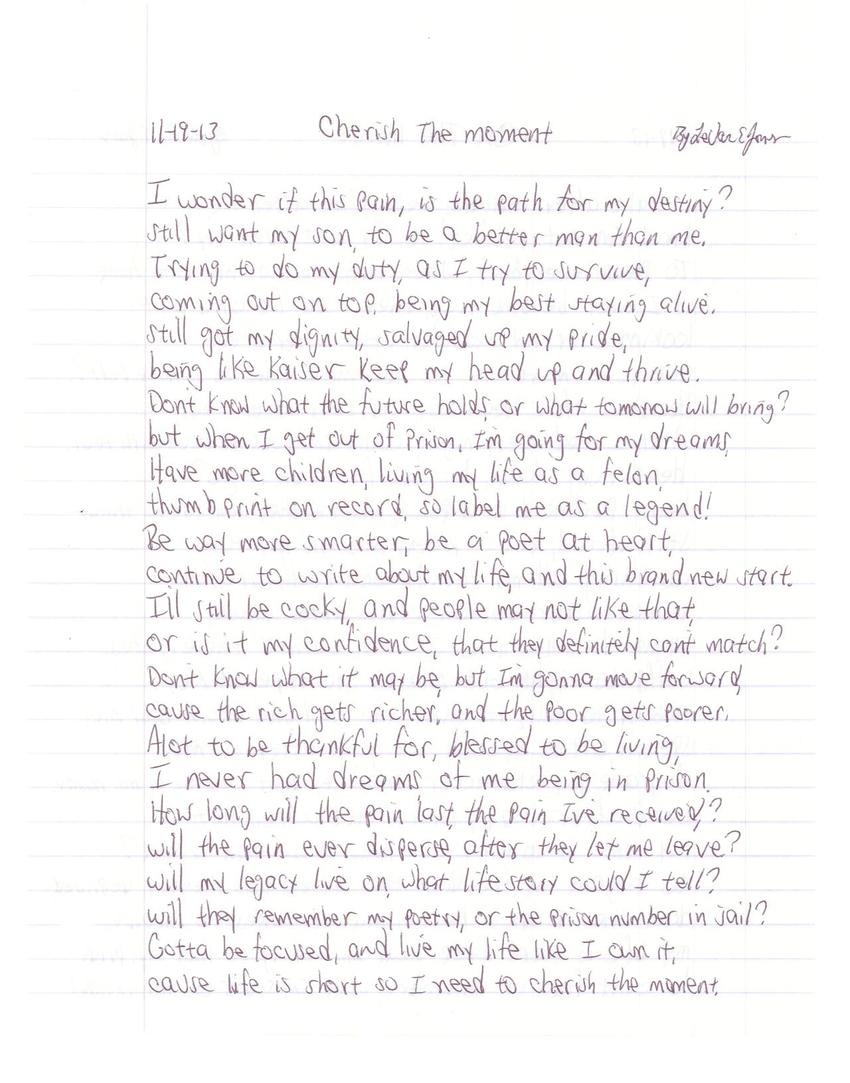 11-19-13 Cherish The moment By LeVar E Jones
I wonder if this pain, is the path for my destiny?
still want my son, to be a better man than me.
Trying to do my duty, as I try to survive,
coming out on top, being my best staying alive.
still got my dignity, salvaged up my pride,
being like Kaiser keep my head up and thrive.
Dont know what the future holds, or what tomorrow will bring?
but when I get out of prison, I'm going for my dreams,
Have more children, living my life as a felon,
thumb print on record, so label me as a legend!
Be way more smarter, be a poet at heart,
continue to write about my life, and this brand new start.
I'll still be cocky, and people may not like that,
or is it my confidence, that they definitely cant match?
Don't know what it may be, but I'm gonna move forward,
cause the rich gets richer, and the poor gets poorer.
Alot to be thankful for, blessed to be living,
I never had dreams of me being in prison.
How long will the pain last, the pain I've received?
will the pain ever disperse, after they let me leave?
will my legacy live on, what life story could I tell?
will they remember my poetry, or the prison number in jail?
Gotta be focused, and live my life like I own it,
cause life is short so I need to cherish the moment.